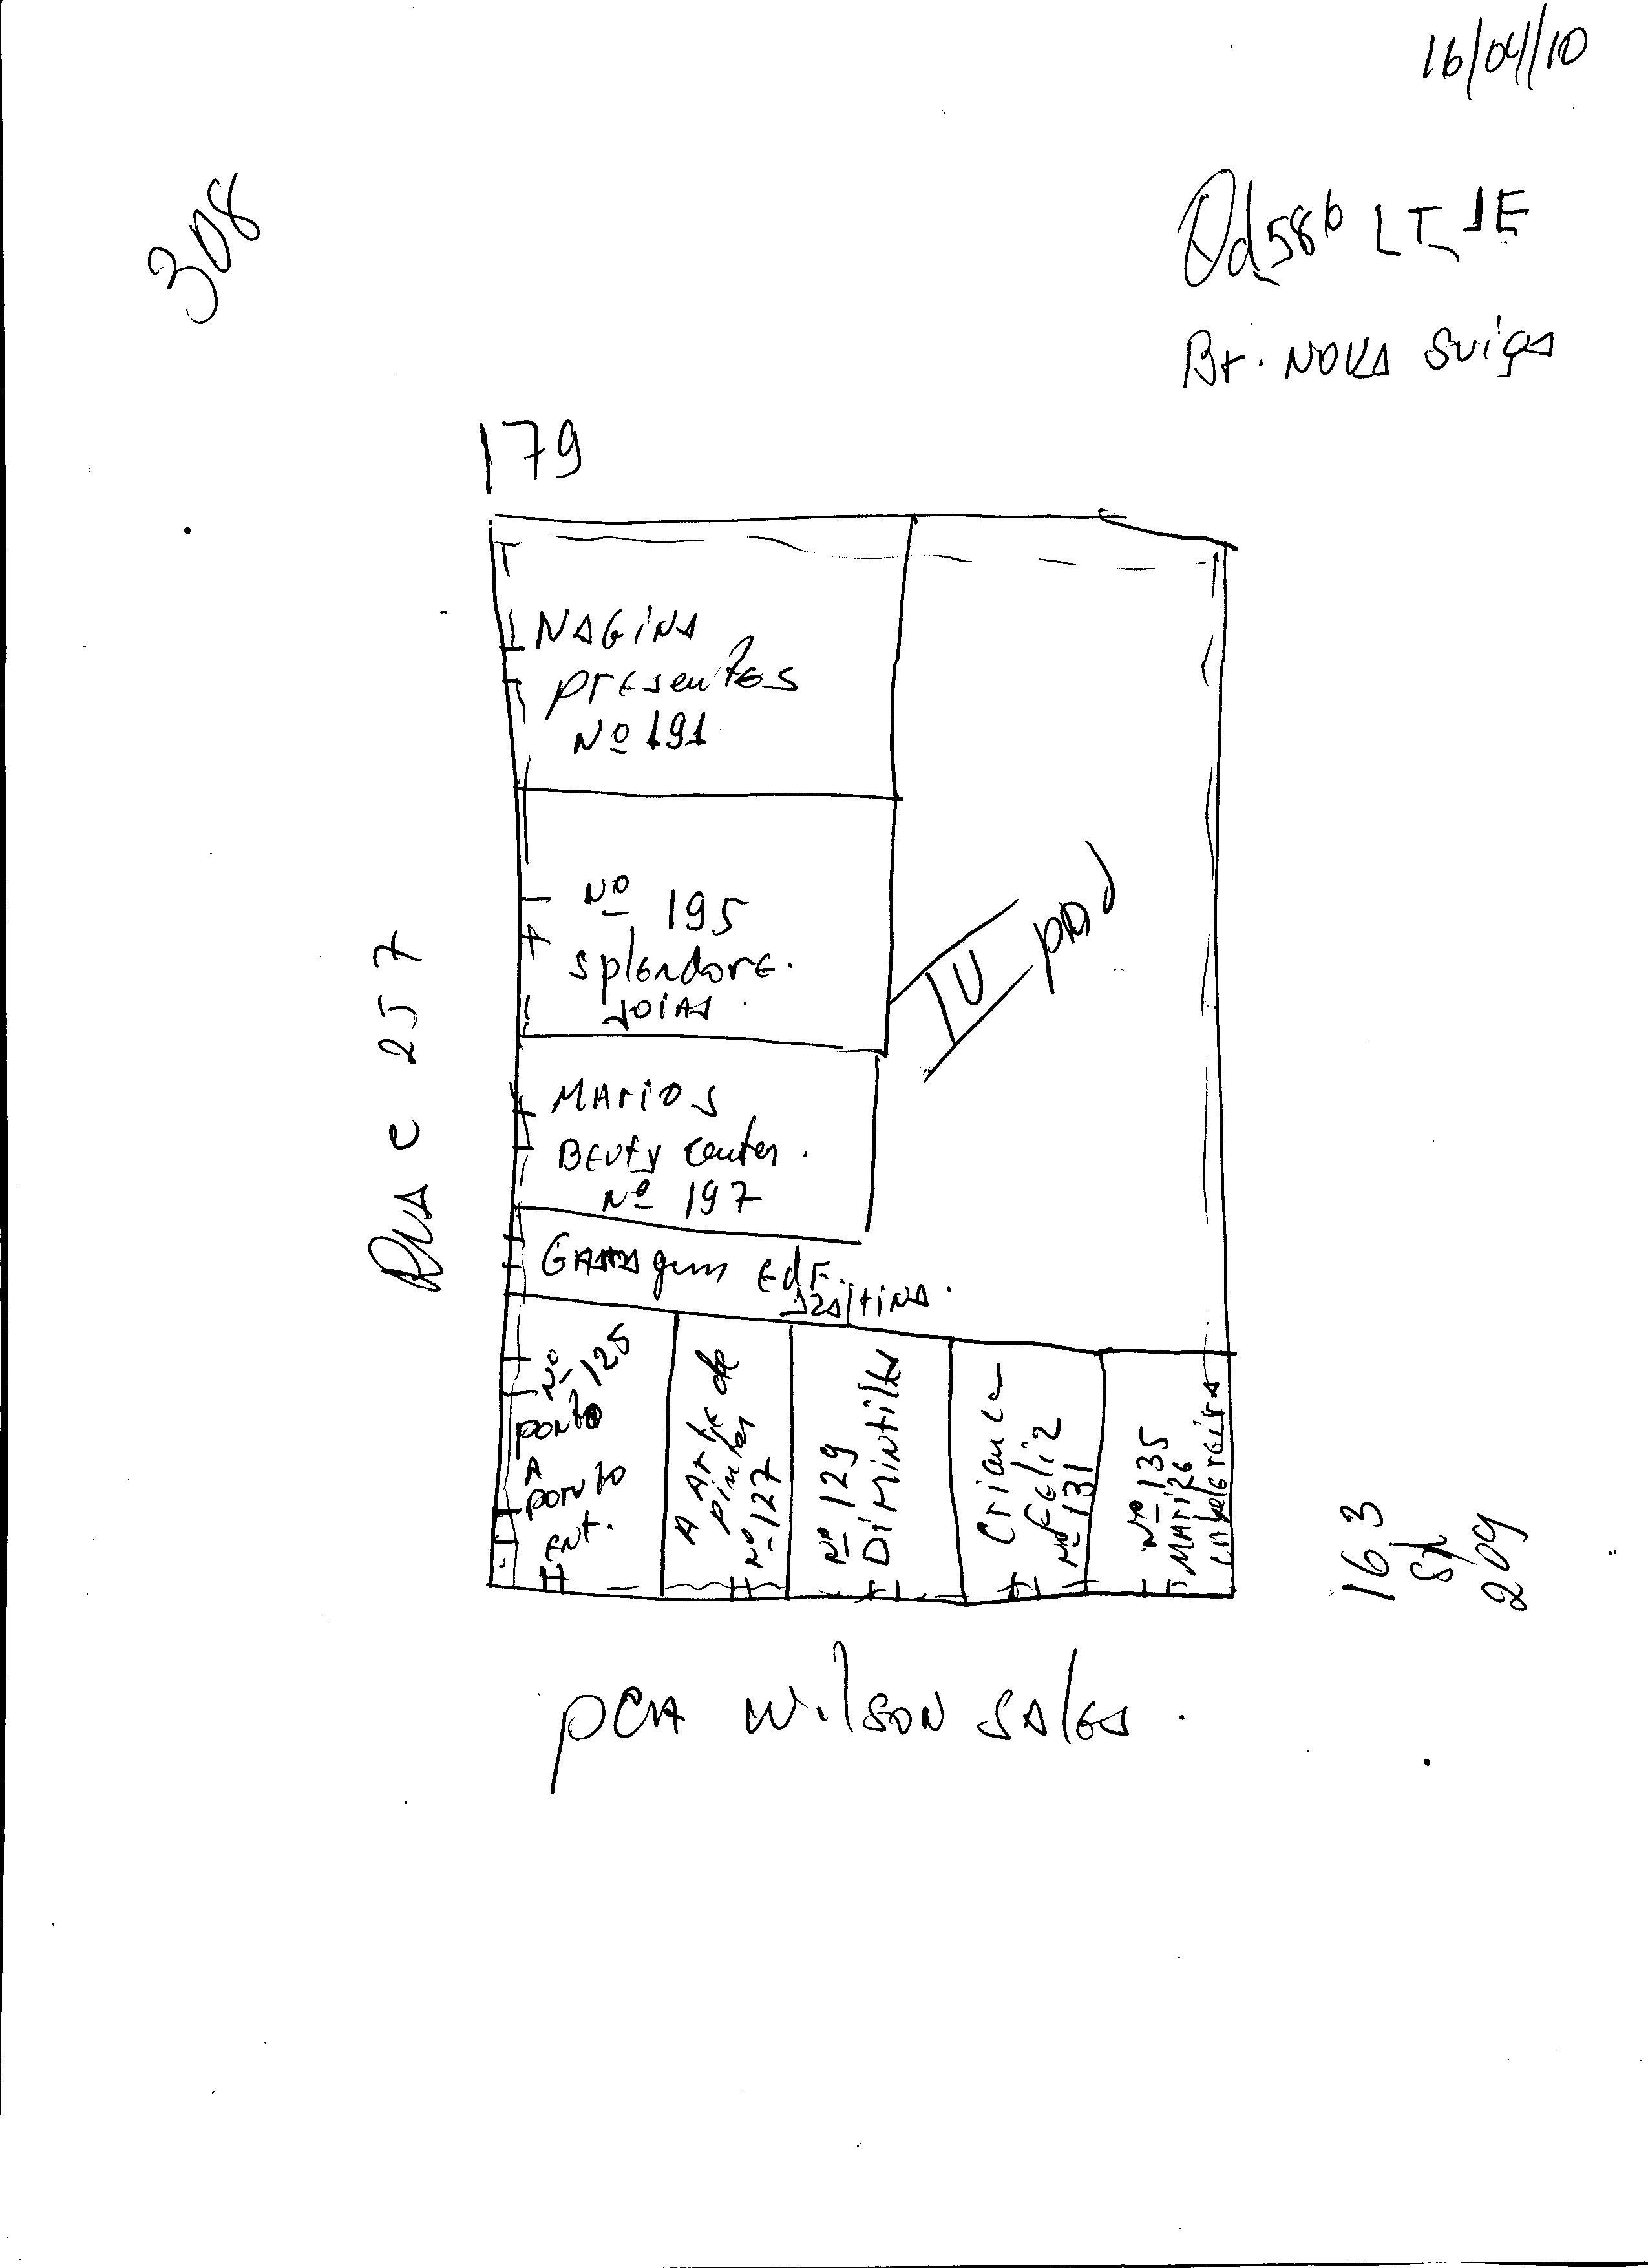 16/04/10
308
Qd 586 LT 1E
Br. NOVA SUIÇA
179
NAGINA
presentes
Nº 191
Nº 195
Splendore.
JOIAS.
RUA C 257
IV pav
MARIOS
BEUTY Center.
Nº 197
GARAgem Edf.
IZAltina.
Nº 125
ponto
A
ponto
ENT.
A Arte de
pintar
Nº 127
Nº 129
Di Mintilha
Criança
FEliz
Nº 131
Nº 135
MARIZE
CABELEREIRA
163
209
pCA Wilson SALES.